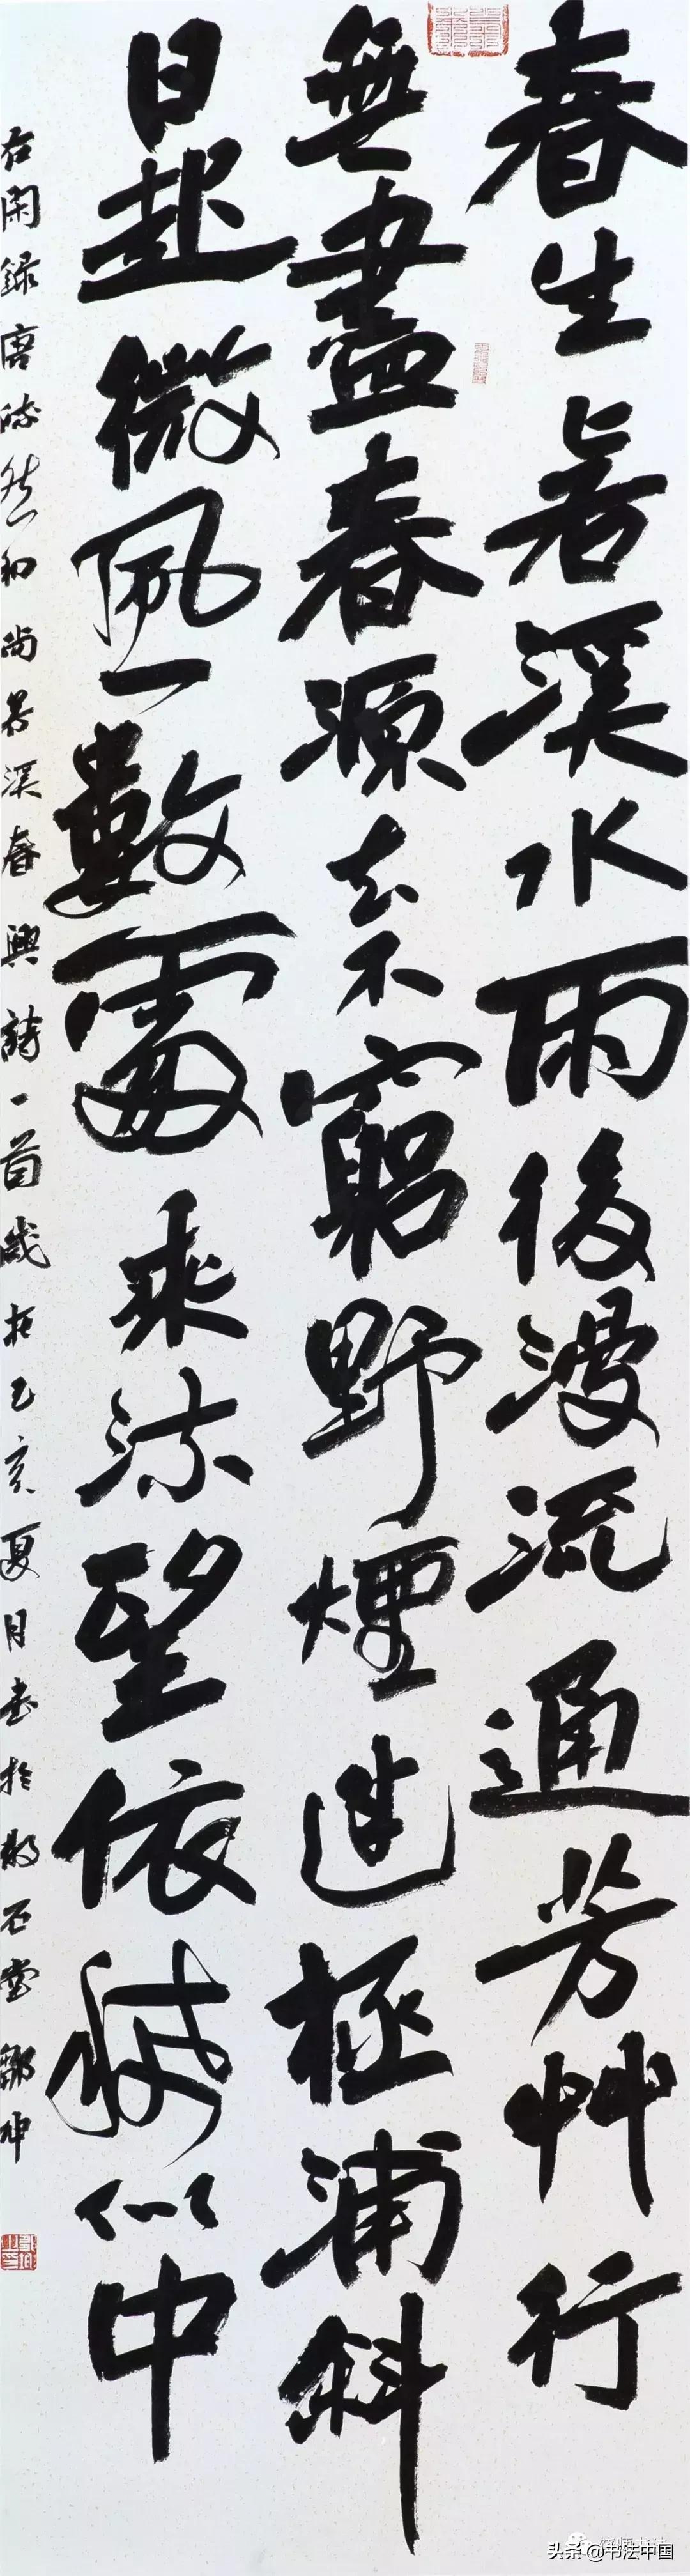 春生若溪水雨後漫流通芳艸行
無盡春源去不窮野煙迷極浦斜
日起微風數處乘流望依稀似中
右閑録唐皎然和尚若溪春興詩一首歲在己亥夏月書於散石堂鄒坤
头条 @书法中国